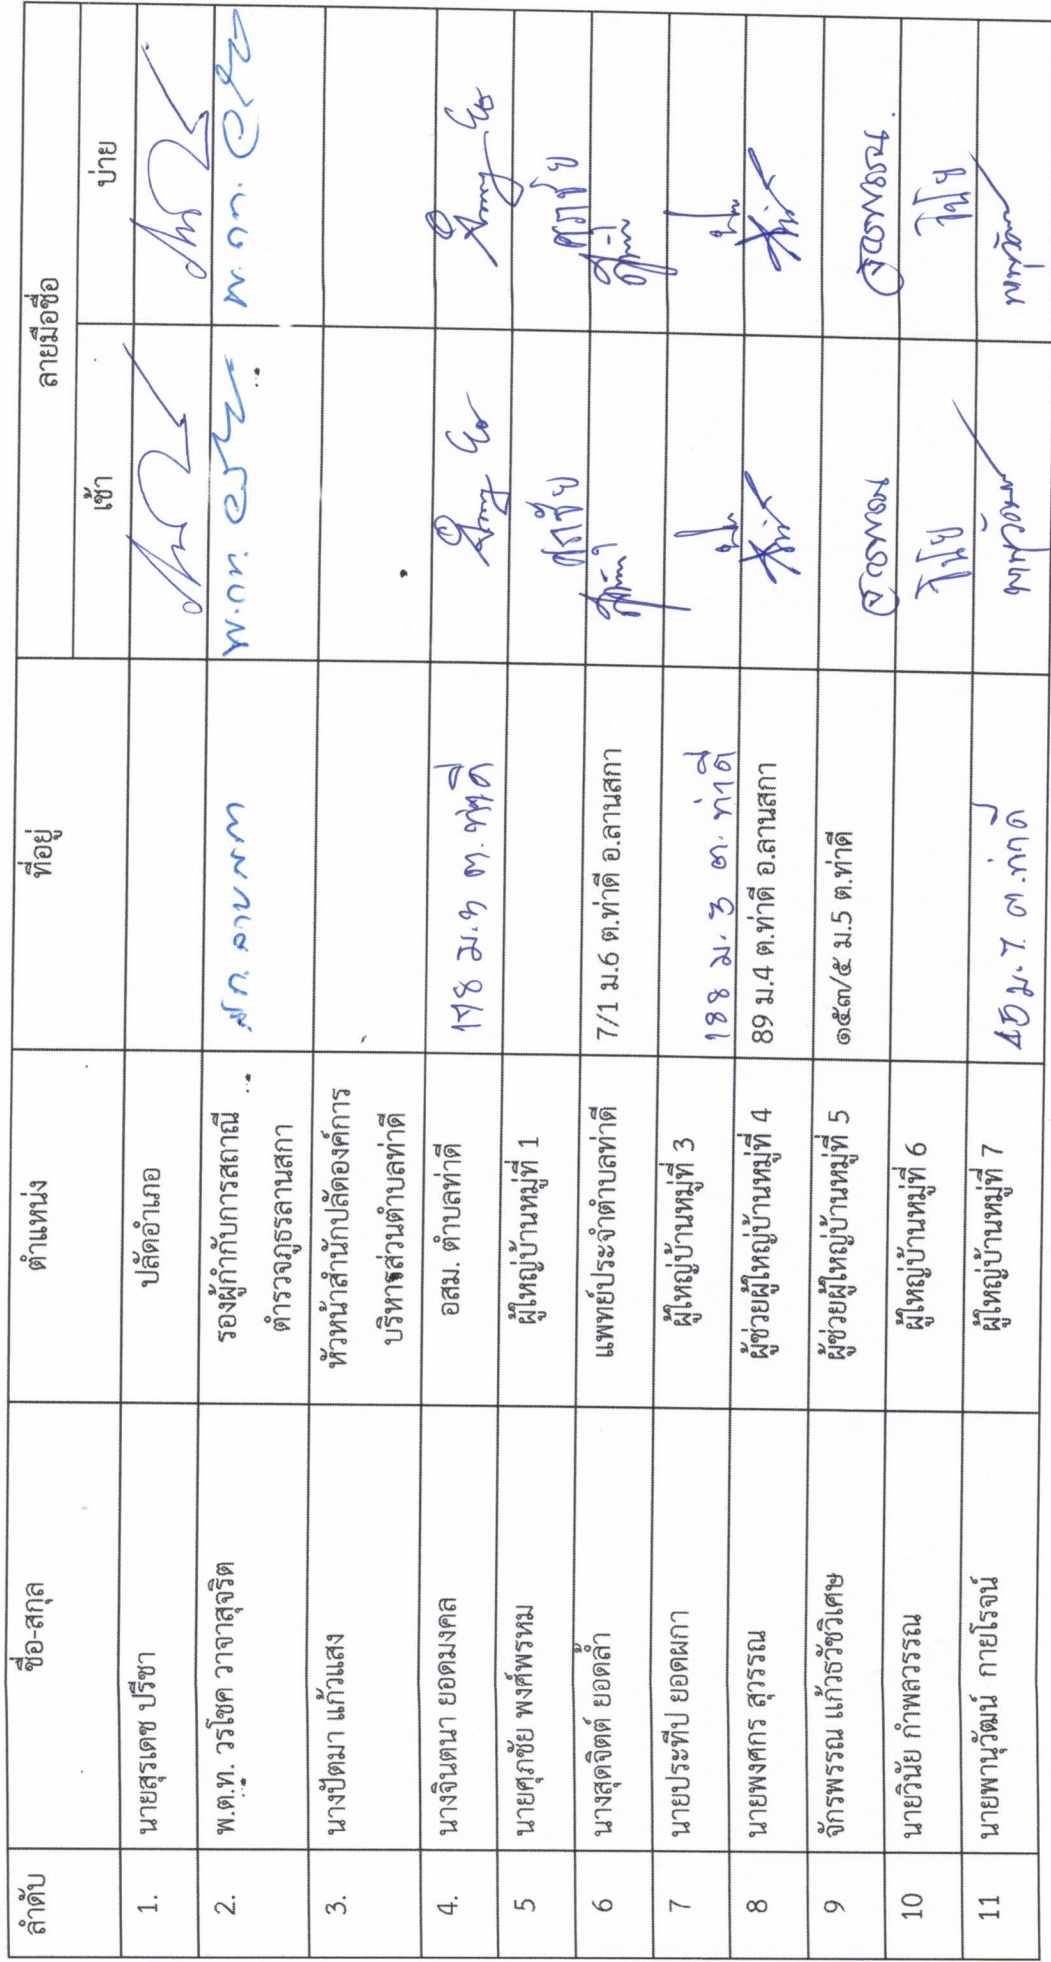 ลำดับ ชื่อ-สกุล ตำแหน่ง ที่อยู่ ลายมือชื่อ
เช้า บ่าย
1. นายสุรเดช ปรีชา ปลัดอำเภอ
2. พ.ต.ท. วรโชค วาจาสุจริต รองผู้กำกับการสถานี
ตำรวจภูธรลานสกา
3. นางปัตมา แก้วแสง หัวหน้าสำนักปลัดองค์การ
บริหารส่วนตำบลท่าดี
4. นางจินตนา ยอดมงคล อสม. ตำบลท่าดี 178 ม.7 ต.ท่าดี
5 นายศุภชัย พงศ์พรหม ผู้ใหญ่บ้านหมู่ที่ 1 ศุภชัย ศุภชัย
6 นางสุดจิตต์ ยอดล้ำ แพทย์ประจำตำบลท่าดี 7/1 ม.6 ต.ท่าดี อ.ลานสกา
7 นายประทีป ยอดผกา ผู้ใหญ่บ้านหมู่ที่ 3 188 ม. 3 ต. ท่าดี
8 นายพงศกร สุวรรณ ผู้ช่วยผู้ใหญ่บ้านหมู่ที่ 4 89 ม.4 ต.ท่าดี อ.ลานสกา
9 จักรพรรณ แก้วธวัชวิเศษ ผู้ช่วยผู้ใหญ่บ้านหมู่ที่ 5 ๑๕๓/๕ ม.5 ต.ท่าดี
10 นายวินัย กำพลวรรณ ผู้ใหญ่บ้านหมู่ที่ 6 วินัย วินัย
11 นายพานุวัฒน์ กายโรจน์ ผู้ใหญ่บ้านหมู่ที่ 7 ม. 7 ต.ท่าดี